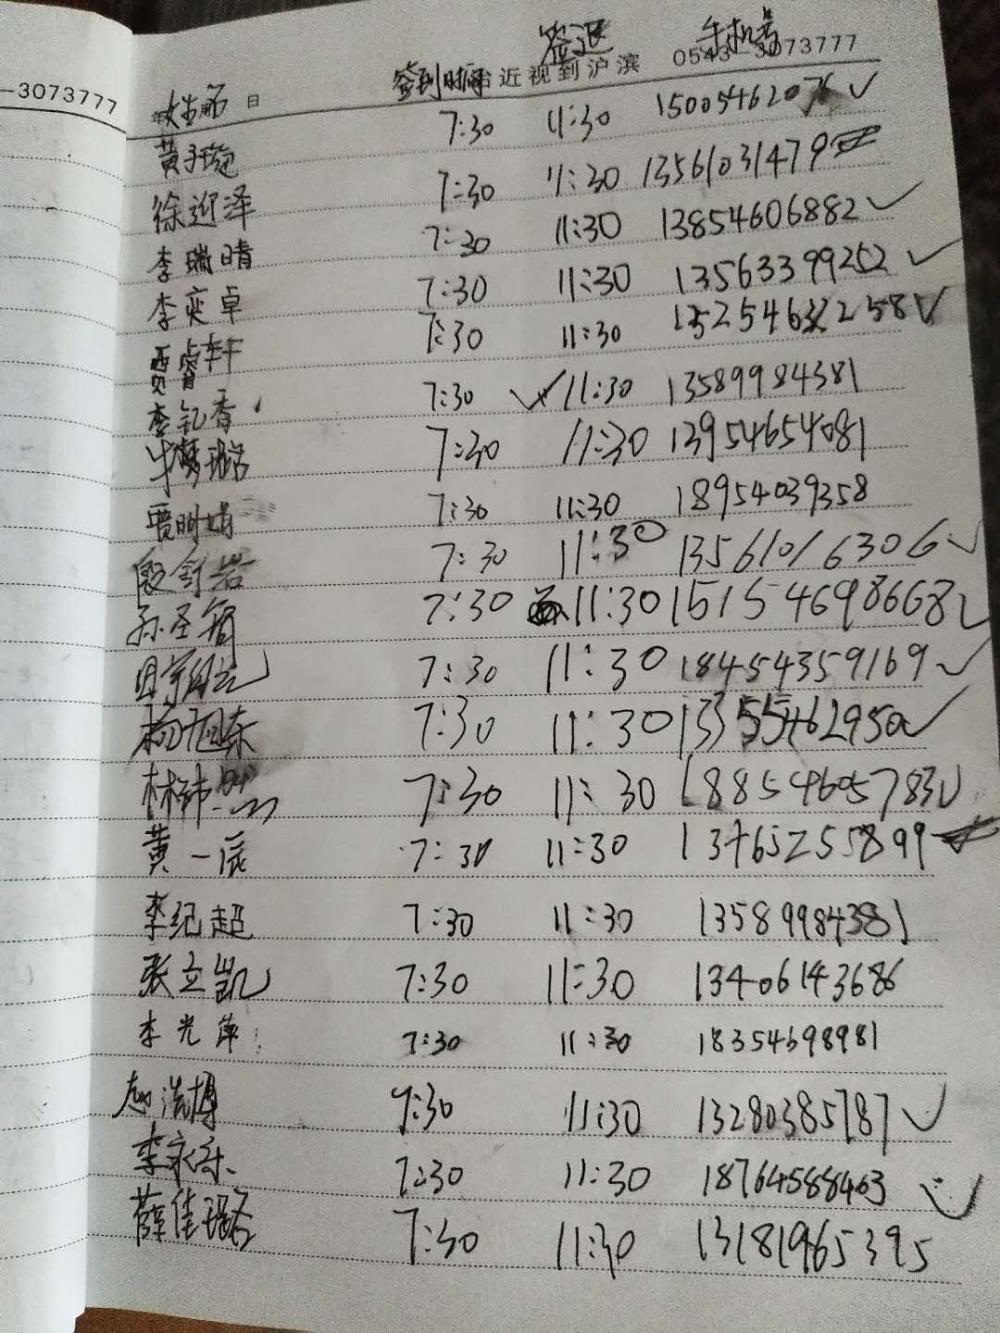 -3073777
治近视到沪滨 0543-3073777
姓名 日 签到时间 签退 手机号
黄子璇 7:30 11:30 15005462076
徐迎泽 7:30 11:30 13561031479
李瑞晴 7:30 11:30 13854606882
李奕卓 7:30 11:30 13563399252
贾睿轩 7:30 11:30
李钇香 7:30 11:30 13589984381
牛梦璐 7:30 11:30 13954654081
贾明娟 7:30 11:30 18954039358
殷钊岩 7:30 11:30 13561016306
孙圣翰 7:30 11:30 15154698668
7:30 11:30 18454359169
杨旭东 7:30 11:30 13355462950
林 7:30 11:30 18854605783
黄一辰 7:30 11:30 13465255899
李纪超 7:30 11:30 13589984381
张立凯 7:30 11:30 13406143686
李光萍 7:30 11:30 18354698981
浩博 7:30 11:30 13280385787
李永乐 7:30 11:30 18764588463
薛佳璐 7:30 11:30 13181965395